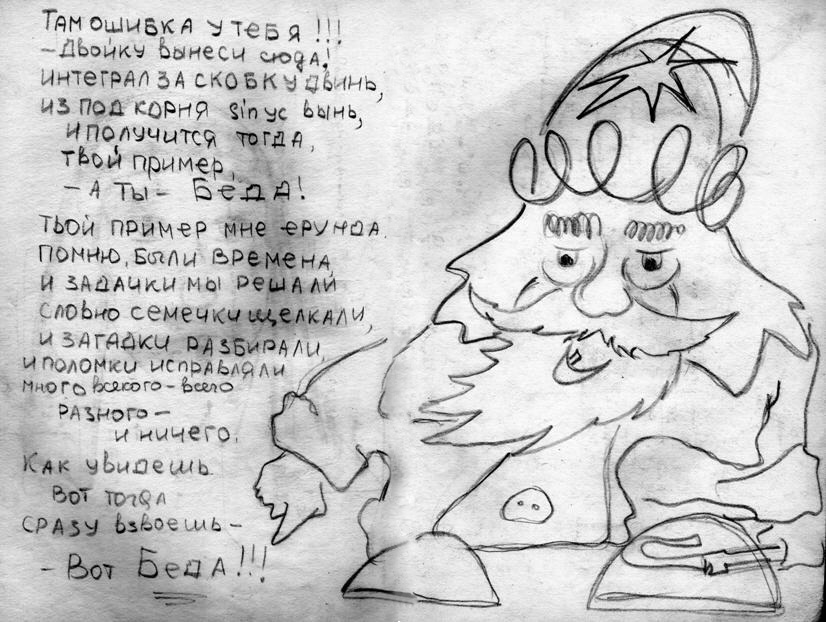 Там ошибка у тебя!!!
– Двойку вынеси сюда!
интеграл за скобку двинь,
из под корня sinус вынь,
и получится тогда,
твой пример,
– а ты – Беда!
Твой пример мне ерунда.
Помню, были времена,
и задачки мы решали
словно семечки щелкали,
и загадки разбирали,
и поломки исправляли
много всякого-всего
разного –
и ничего.
Как увидешь
вот тогда
сразу взвоешь –
– Вот Беда!!!